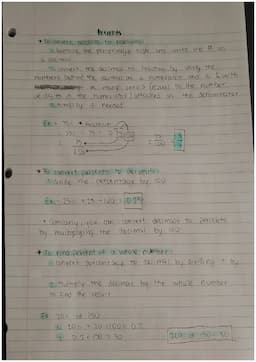 Percents
• To convert percents to fractions:
① Remove the percentage sign and write the # as
a decimal
② convert the decimal to fraction by using the
numbers behind the decimal as a numerator and a 1 with
as many zeros (equal to the number
of digits in the numerator) attached in the denominator
③ simplify if needed
• To convert percents to decimals:
① divide the percentage by 100
Ex: 25% → 25 ÷ 100 = 0.25
• Conversely, you can convert decimals to percents
by multiplying the decimal by 100
• To find percent of a whole number:
① convert percentage to decimal by dividing # by
② multiply the decimal by the whole number
to find the result
Ex: 20% of 150
① 20% → 20 ÷ 100 = 0.2
② 0.2 × 150 = 30
20% of 150 = 30